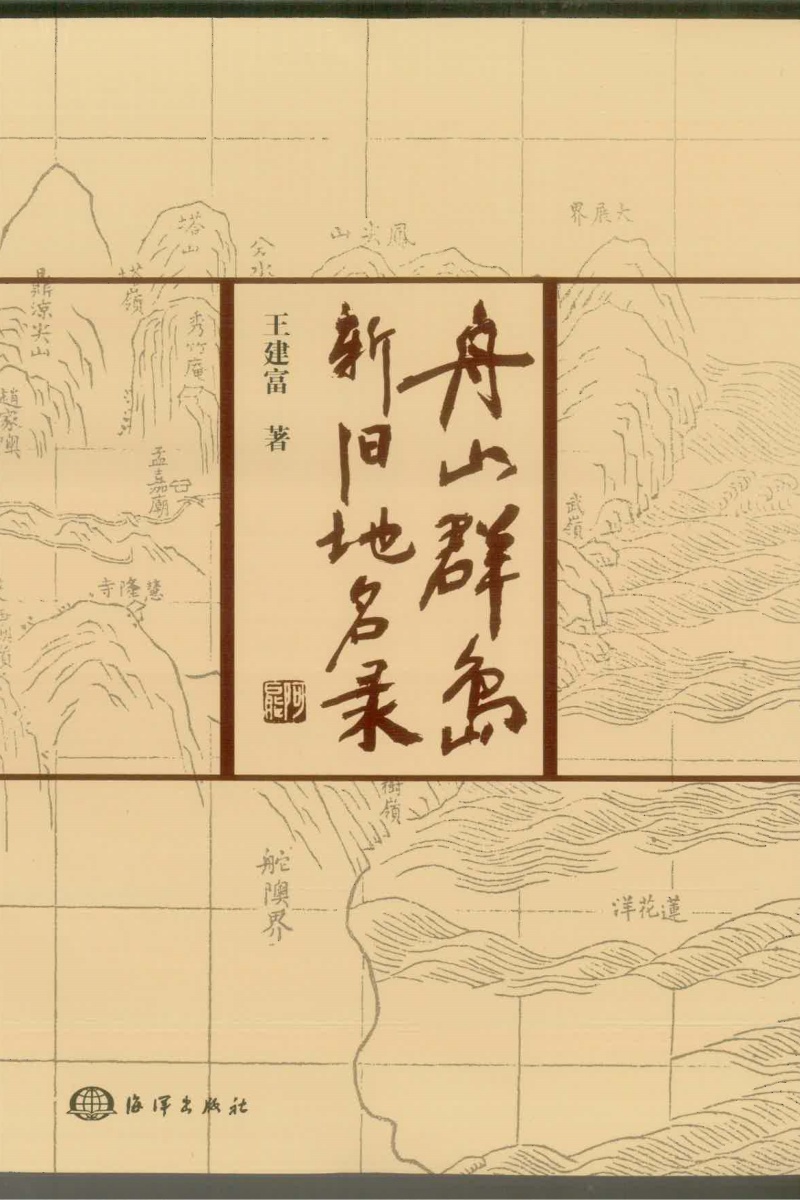 舟山群岛
新旧地名录
王建富 著
大展界
鳳尖山
塔山
塔嶺
鼎涼尖山
秀竹庵
趙家奧
孟嘉廟
武嶺
慧隆寺
樹嶺
舵隩界
蓮花洋
海洋出版社